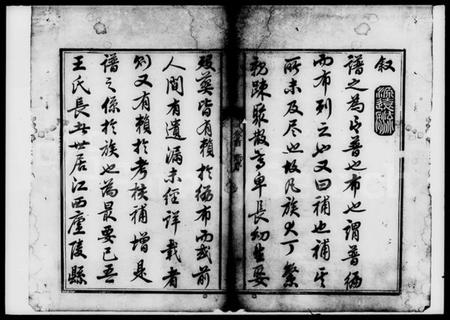 叙
譜之為言普也布也謂普徧
而布列之也又曰補也補其
所未及尽也故凡族大丁繁
親疎聚散尊卑長幼生娶
殁塟皆有賴於徧布而或前
人間有遺漏未經詳載者
則又有賴於考核補增是
譜之係於族也為最要已吾
王氏長房世居江西廬陵縣